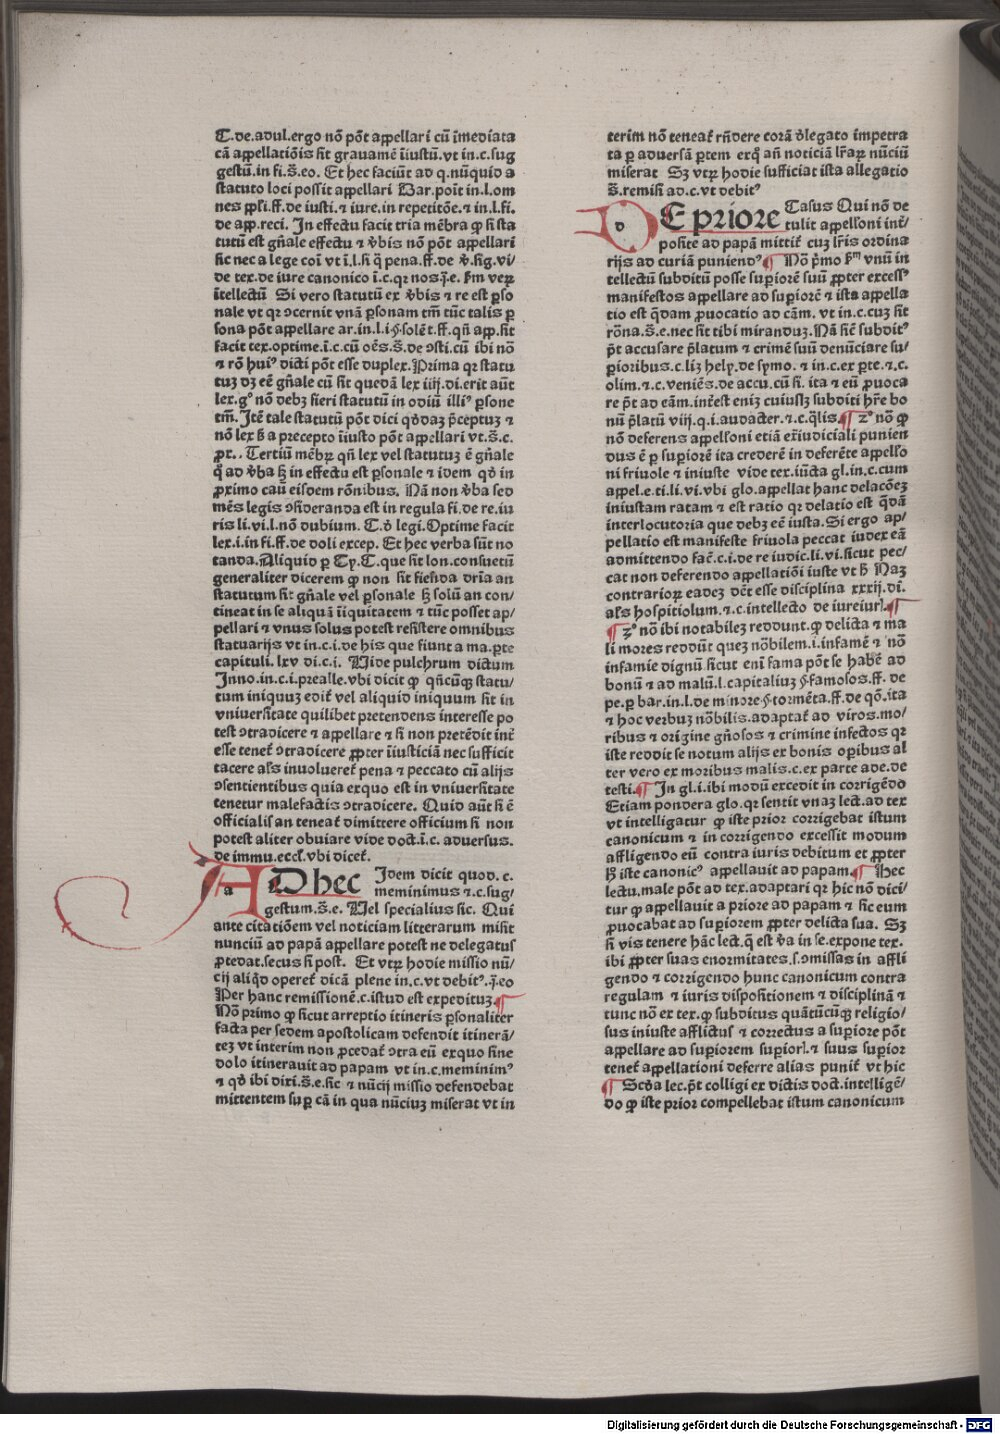 C.de.adul.ergo nō pōt appellari cū īmediata
cā appellatiōis sit grauamē īiustū.vt in.c.sug
gestū.in fi.s̄.eo. Et hec faciūt ad q.nūquid a
statuto loci possit appellari Bar.poīt in.l.om
nes ppłi.ff.de iusti.⁊ iure.in repetitōe.⁊ in.l.fi.
de app.reci. In effectu facit tria mēbra ꝙ si sta
tutū est gn̄ale effectu ⁊ v̄bis nō pōt appellari
sic nec a lege coi vt ī.l.si q̄ pena.ff.de v̄.sig.vi/
de tex.de iure canonico ī.c.qꝛ nos.j.e. hm veꝝ
ītellectū Si vero statutū ex v̄bis ⁊ re est ꝑso
nale vt qꝛ ↄcernit vnā ꝑsonam tm̄ tūc talis ꝑ
sona pōt appellare ar.in.l.i.§.solēt.ff.qn̄ app.sit
facit tex.optime.ī.c.cū oēs.s̄.de ↄsti.cū ibi nō
⁊ rō huiꝰ dicti pōt esse duplex. Prima qꝛ statu
tuꝫ dꝫ eē gn̄ale cū sit quedā lex iiij.di.erit aūt
lex.gͦ nō debꝫ fieri statutū in odiū illiꝰ ꝑsone
tm̄. Itē tale statutū pōt dici qd̄daꝫ p̄ceptuꝫ ⁊
nō lex ħ a precepto īiusto pōt appellari vt.s̄.c.
ꝓx.. Tertiū mēbꝝ qn̄ lex vel statutuꝫ ē gn̄ale
q̄ ad v̄ba hꝫ in effectu est ꝑsonale ⁊ idem qd̄ in
ꝓximo cau eisdem rōnibus. Nā non v̄ba sed
mēs legis ↄsideranda est in regula fi.de re.iu
ris li.vi.l.nō dubium. C.d̄ legi. Optime facit
lex.i.in fi.ff.de doli excep. Et hec verba sūt no
tanda. Aliquid ꝑ Cy.C.que sit lon.consuetū
generaliter dicerem ꝙ non sit fienda dr̄ia an
statutum sit gn̄ale vel ꝑsonale hꝫ solū an con/
tineat in se aliquā īiquitatem ⁊ tūc posset ap/
pellari ⁊ vnus solus potest resistere omnibus
statuarijs vt in.c.i.de his que fiunt a ma.ꝑte
capituli. lxv di.c.i. Vide pulchrum dictum
Inno.in.c.i.prealle.vbi dicit ꝙ qn̄cūqꝫ statu/
tum iniquuꝫ edit̄ vel aliquid iniquum sit in
vniuersitate quilibet pretendens interesse po
test ↄtradicere ⁊ appellare ⁊ si non pretēdit int̄
esse tenet̄ ↄtradicere ꝓpter īiusticiā nec sufficit
tacere als inuolueret̄ pena ⁊ peccato cū alijs
ↄsentientibus quia exquo est in vniuersitate
tenetur malefactis ↄtradicere. Quid aūt si ē
officialis an teneat̄ dimittere officium si non
potest aliter obuiare vide doct.ī.c. aduersus.
de immu.eccl̄.vbi dicet̄.
a AD hec Idem dicit quod.c.
meminimus ⁊.c.sug/
gestum.s̄.e. Vel specialius sic. Qui
ante citatiōem vel noticiam litterarum misit
nunciū ad papā appellare potest ne delegatus
ꝓcedat.secus si post. Et vtꝝ hodie missio nū/
cij aliqd̄ operet̄ dicā plene in.c.vt debitꝰ.j.eo
Per hanc remissionē.c.istud est expedituꝫ.
Nō primo ꝙ sicut arreptio itineris ꝑsonaliter
facta per sedem apostolicam defendit itinerā/
teꝫ vt interim non ꝓcedat̄ ↄtra eū exquo sine
dolo itinerauit ad papam vt in.c.meminimꝰ
⁊ qd̄ ibi dixi.s̄.e.sic ⁊ nūcij missio defendebat
mittentem suꝑ cā in qua nūciuꝫ miserat vt in
terim nō teneat̄ rn̄dere corā d̄legato īmpetra
ta ꝑ aduersā ꝑtem exq̄ an̄ noticiā lr̄aꝝ nūciū
miserat Sꝫ vtꝝ hodie sufficiat ista allegatio
s̄.remisi ad.c.vt debitꝰ
D E priore Casus Qui nō de
tulit appellōni inṫ/
posite ad papā mittit̄ cuꝫ lr̄is ordina
rijs ad curiā puniendꝰ Nō p̄mo hm vnū in
tellectū subditū posse suꝑiorē suū ꝓpter excessꝰ
manifestos appellare ad suꝑiorē ⁊ ista appella
tio est q̄dam ꝓuocatio ad cām. vt in.c.cuꝫ sit
rōna.s̄.e.nec sit tibi miranduꝫ. Nā sicē subditꝰ
pt̄ accusare p̄latum ⁊ crimē suū denūciare su/
ꝑioribus.c.liꝫ hely.de symo. ⁊ in.c.ex ꝑte.⁊.c.
olim.⁊.c.veniēs.de accu.cū si. ita ⁊ eū ꝓuoca
re pt̄ ad eām.int̄est eniꝫ cuiuslꝫ subditi hr̄e bo
nū p̄latū viij.q.i.audacter.⁊.c.q̄lis. zͦ nō ꝙ
nō deferens appellōni etiā ex̄iudiciali punien
dus ē ꝑ suꝑiorē ita crederē in deferēte appello
ni friuole ⁊ iniuste vide tex.iūcta gl.in.c.cum
appel.e.ti.li.vi.vbi glo.appellat hanc delacōeꝫ
iniustam ratam ⁊ est ratio qꝛ delatio est q̄dā
interlocutoria que debꝫ eē iusta. Si ergo ap/
pellatio est manifeste friuola peccat iudex eā
admittendo facē.c.i.de re iudic.li.vi.sicut pec/
cat non deferendo appellatiōi iuste vt ħ Naꝫ
contrarioꝝ eadeꝫ dēt esse disciplina xxxij.di.
als hospitiolum.⁊.c.intellecto de iureiur̄.
zͦ nō ibi notabileꝫ reddunt.ꝙ delicta ⁊ ma
li mores reddūt queꝫ nōbilem.i.infamē ⁊ nō
infamie dignū sicut enī fama pōt se habē ad
bonū ⁊ ad malū.l.capitaliuꝫ §.famosos.ff. de
pe.ꝑ bar.in.l.de minore.§.tormēta.ff.de qō.ita
⁊ hoc verbuꝫ nōbilis.adaptat̄ ad viros.mo/
ribus ⁊ origine gn̄osos ⁊ crimine infectos qꝛ
iste reddit se notum alijs ex bonis oꝑibus al
ter vero ex moribus malis.c.ex parte ade.de
testi. In gl.i.ibi modū excedit in corrigēdo
Etiam pondera glo.qꝛ sentit vnaꝫ lect.ad tex
vt intelligatur ꝙ iste prior corrigebat istum
canonicum ⁊ in corrigendo excessit modum
affligendo eū contra iuris debitum et ꝓpter
hꝫ iste canonicꝰ appellauit ad papam. Hec
lectu.male pōt ad tex.adaptari qꝛ hic nō dici/
tur ꝙ appellauit a priore ad papam ⁊ sic eum
ꝓuocabat ad suꝑiorem ꝓpter delicta sua. Sꝫ
si vis tenere hāc lect.q̄ est v̄a in se.expone tex.
ibi ꝓpter suas enormitates.s.ↄmissas in affli
gendo ⁊ corrigendo hunc canonicum contra
regulam ⁊ iuris dispositionem ⁊ disciplinā ⁊
tunc nō ex tex.ꝙ subditus quātūcūqꝫ religio/
sus iniuste afflictus ⁊ correctus a suꝑiore pōt
appellare ad suꝑiorem suꝑior̄.⁊ suus suꝑior
tenet̄ appellationi deferre alias punit̄ vt hic
Scd̄a lec.pt̄ colligi ex dictis doct.intelligē/
do ꝙ iste prior compellebat istum canonicum
Digitalisierung gefördert durch die Deutsche Forschungsgemeinschaft - DFG